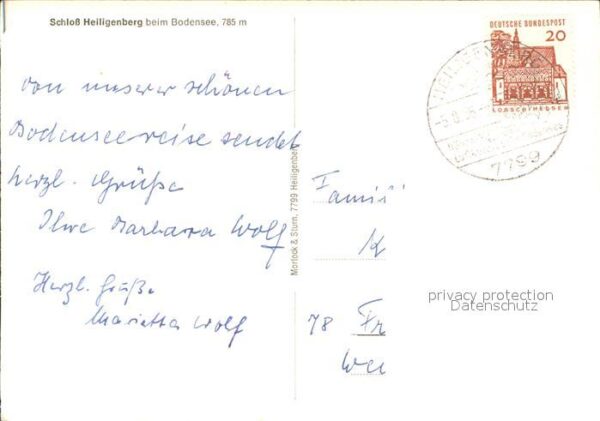 Schloß Heiligenberg beim Bodensee, 785 m
von unserer schönen
Bodenseereise sendet
herzl. Grüße
Ihre Barbara Wolf
Herzl. Grüße
Marietta Wolf
Morlock & Sturn, 7799 Heiligenberg
DEUTSCHE BUNDESPOST
20
LORSCH/HESSEN
7799
Famil
K
78 Fr
We
privacy protection
Datenschutz